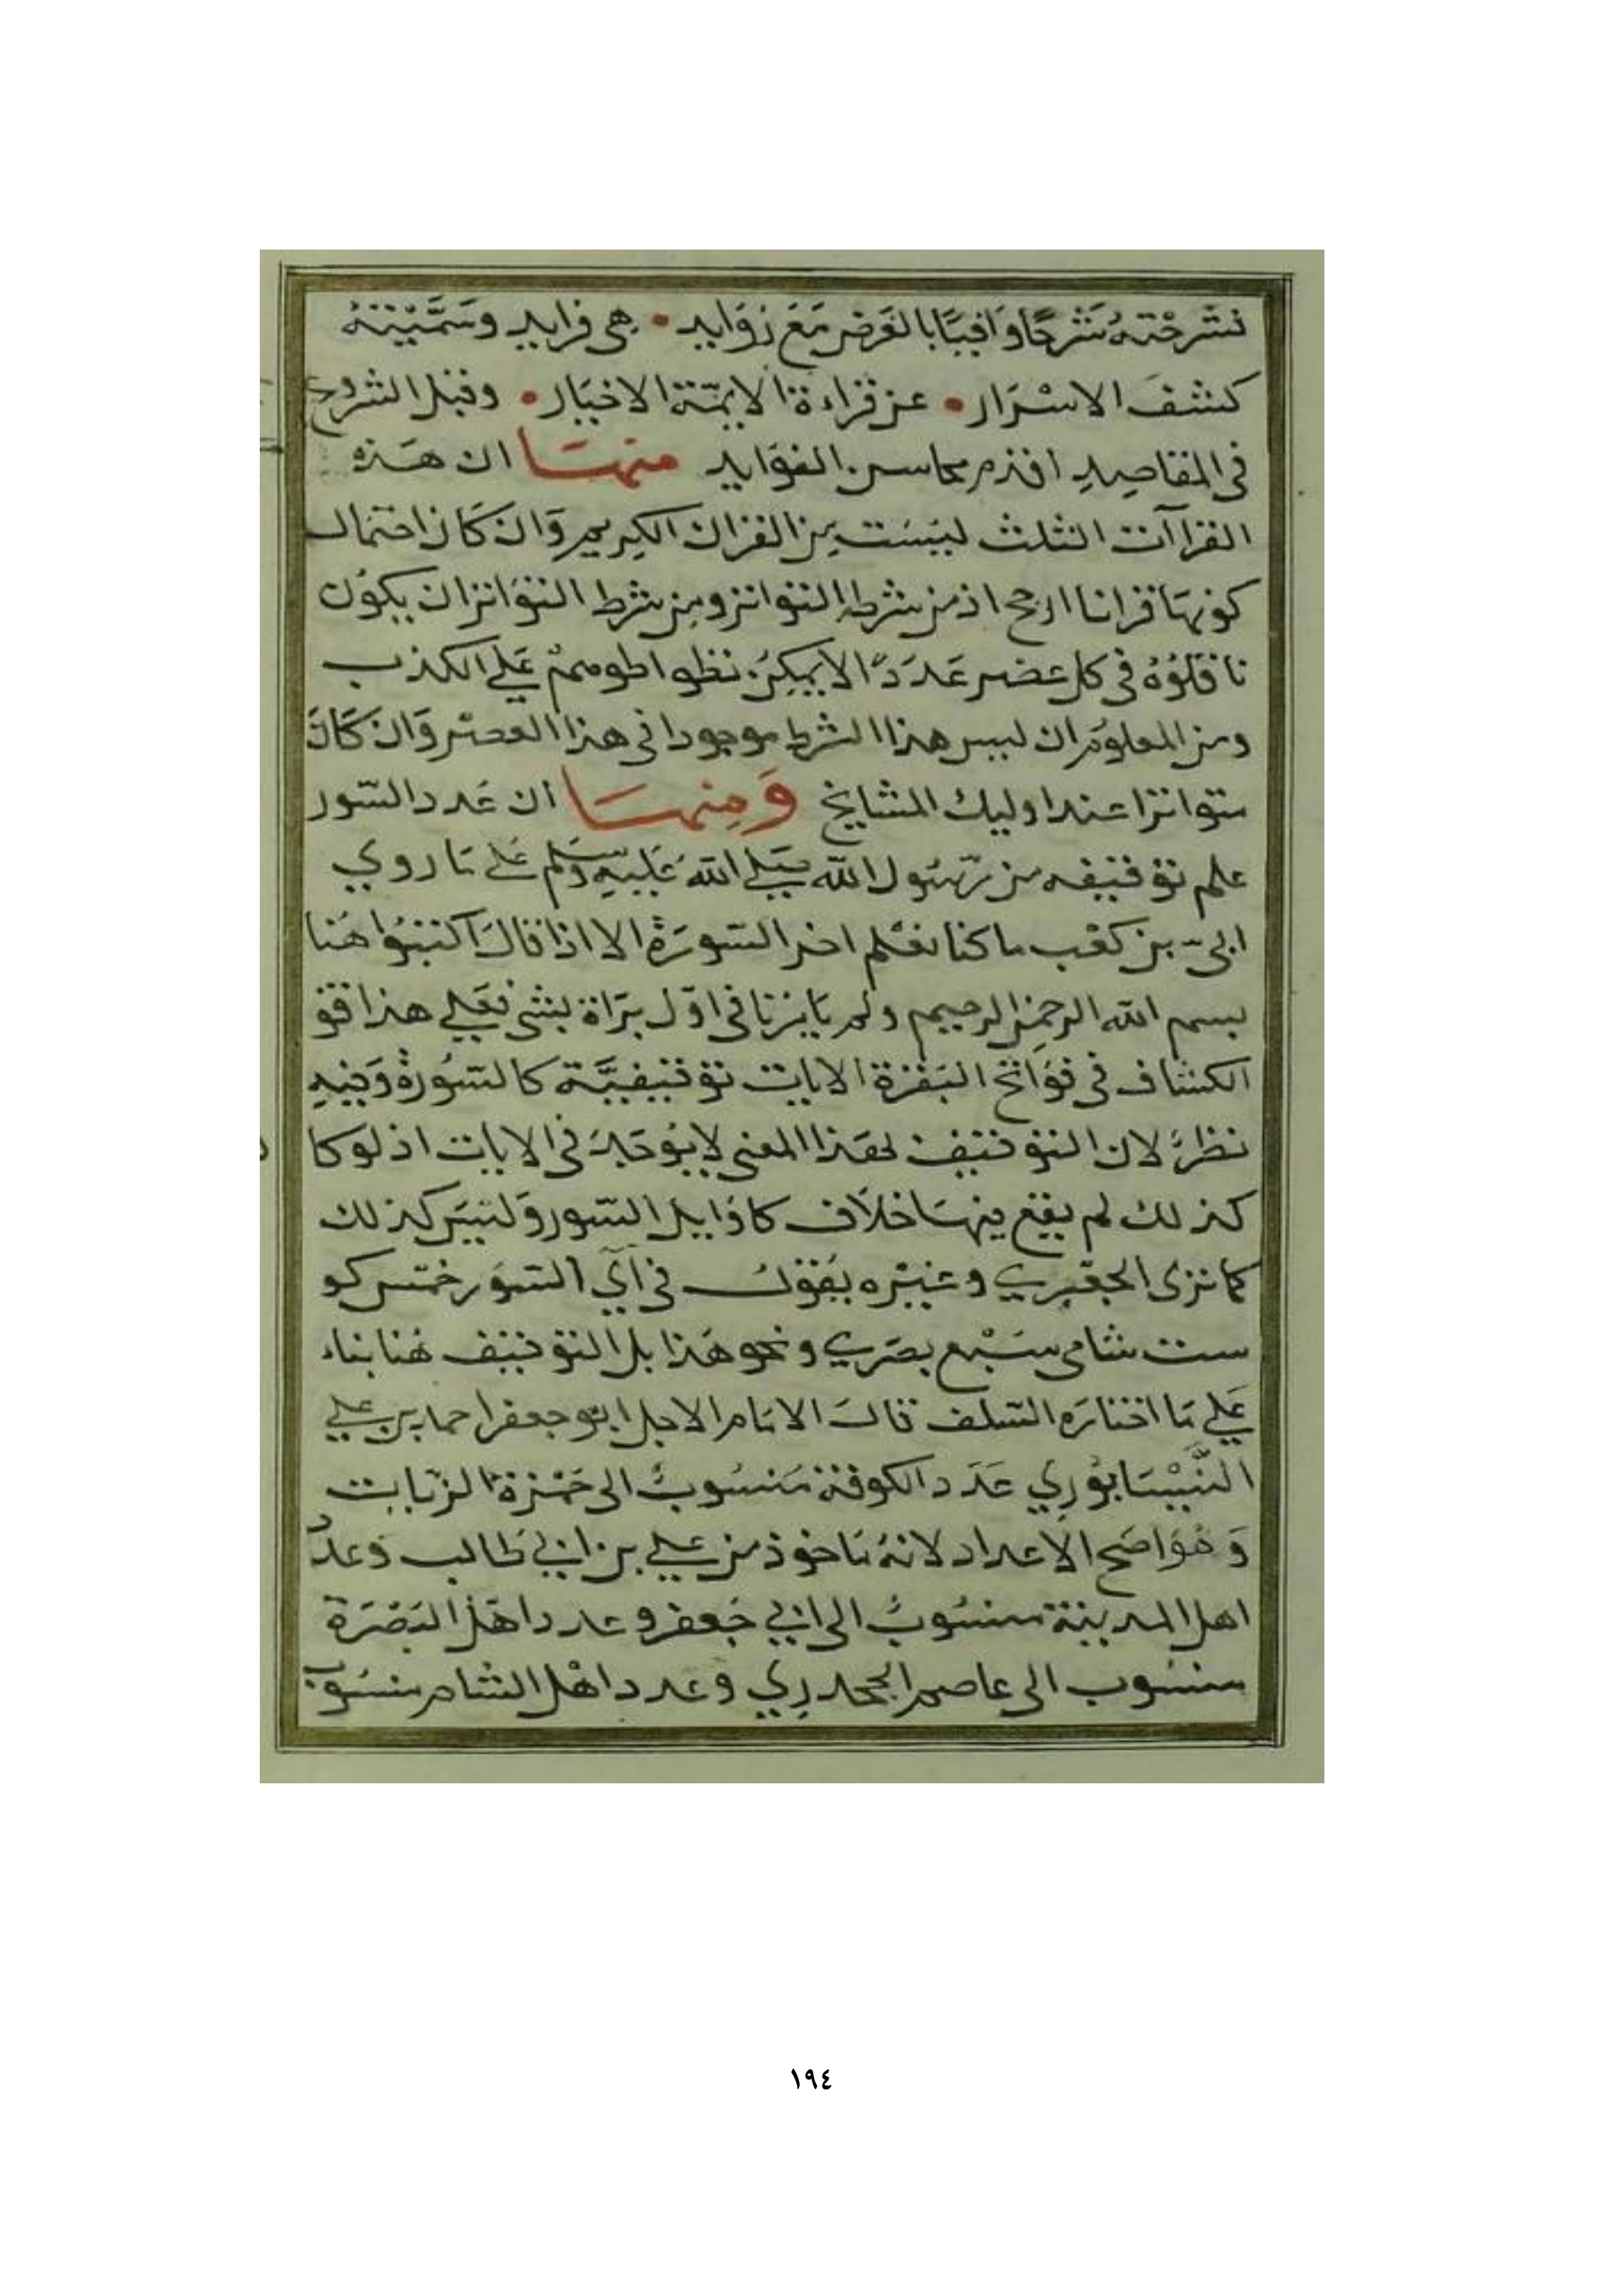 فشَرحْتهُ شَرحًا وَافيًا بالغَرض مَعَ زوَايد • هى فرايد وسَمَّيْتهُ
كشفَ الاسْرَار • عن قراءة الايمّة الاخيَار • وقبل الشروع
فى المقاصِدِ اقدم محاسن الفوَايد منهَا ان هَذه
القراآت الثلث ليسَت مِن القران الكِريم وَان كَان احتمال
كونهَا قرانا ارجح اذ من شرطه التواتر ومِن شرط التوَاتر ان يكوُن
ناقلوُهُ فى كل عضر عَدَدًا لا يمكِن تظواطوهم عَلي الكذب
ومن المعلوُم ان ليس هذا الشرط موجودا فى هذا العصْر وَان كَانَ
متواترا عند اوليك المشايخ وَمِنهَا ان عَدد السّور
علم توقيفه من رّسُول الله صَلي الله عَليهِ وَسَلم عَلى مَا روي
ابىّ بن كعْب ما كنا نعْلم اخر السّورَة الا اذا قالَ اكتبُوا هُنا
بسم الله الرحمن الرحيم ولم يَامرنا فى اوّل برَاة بشى فعَلي هذا قو
الكشاف فى فوَاتح البَقرة الايات توقيفيَّة كالسُورة وَفيهِ
نظرٌ لان التوقيف لهَذا المعنى لا يوُجَد فى الايات اذ لو كا
كذلك لم يقع فيهَا خلاَف كاوَايل السّور وَليسَ كذلك
كما ترى الجعْبري وغيْره يَقوُل فى آي السّوَر خمسْ كو
ست شامى سَبْع بصَري ونحو هَذا بل التوقيف هُنا بناء
عَلي مَا اختارَه السّلف قالَ الامَام الاجل ابو جعفر احمد بن علي
النَّيْسَابوُرِي عَدَد الكوفة مَنسُوبٌ الى حَمْزة الزيات
وَهُوَ اصَح الاعداد لانهُ مَاخوذ من علي بن ابي طَالب وَعددُ
اهل المدينة منسُوبٌ الى ابي جَعفر وعدد اهَل البَصْرَة
منسُوب الى عاصم الجحدرِي وعدد اهْل الشام منسُوبٌ
١٩٤